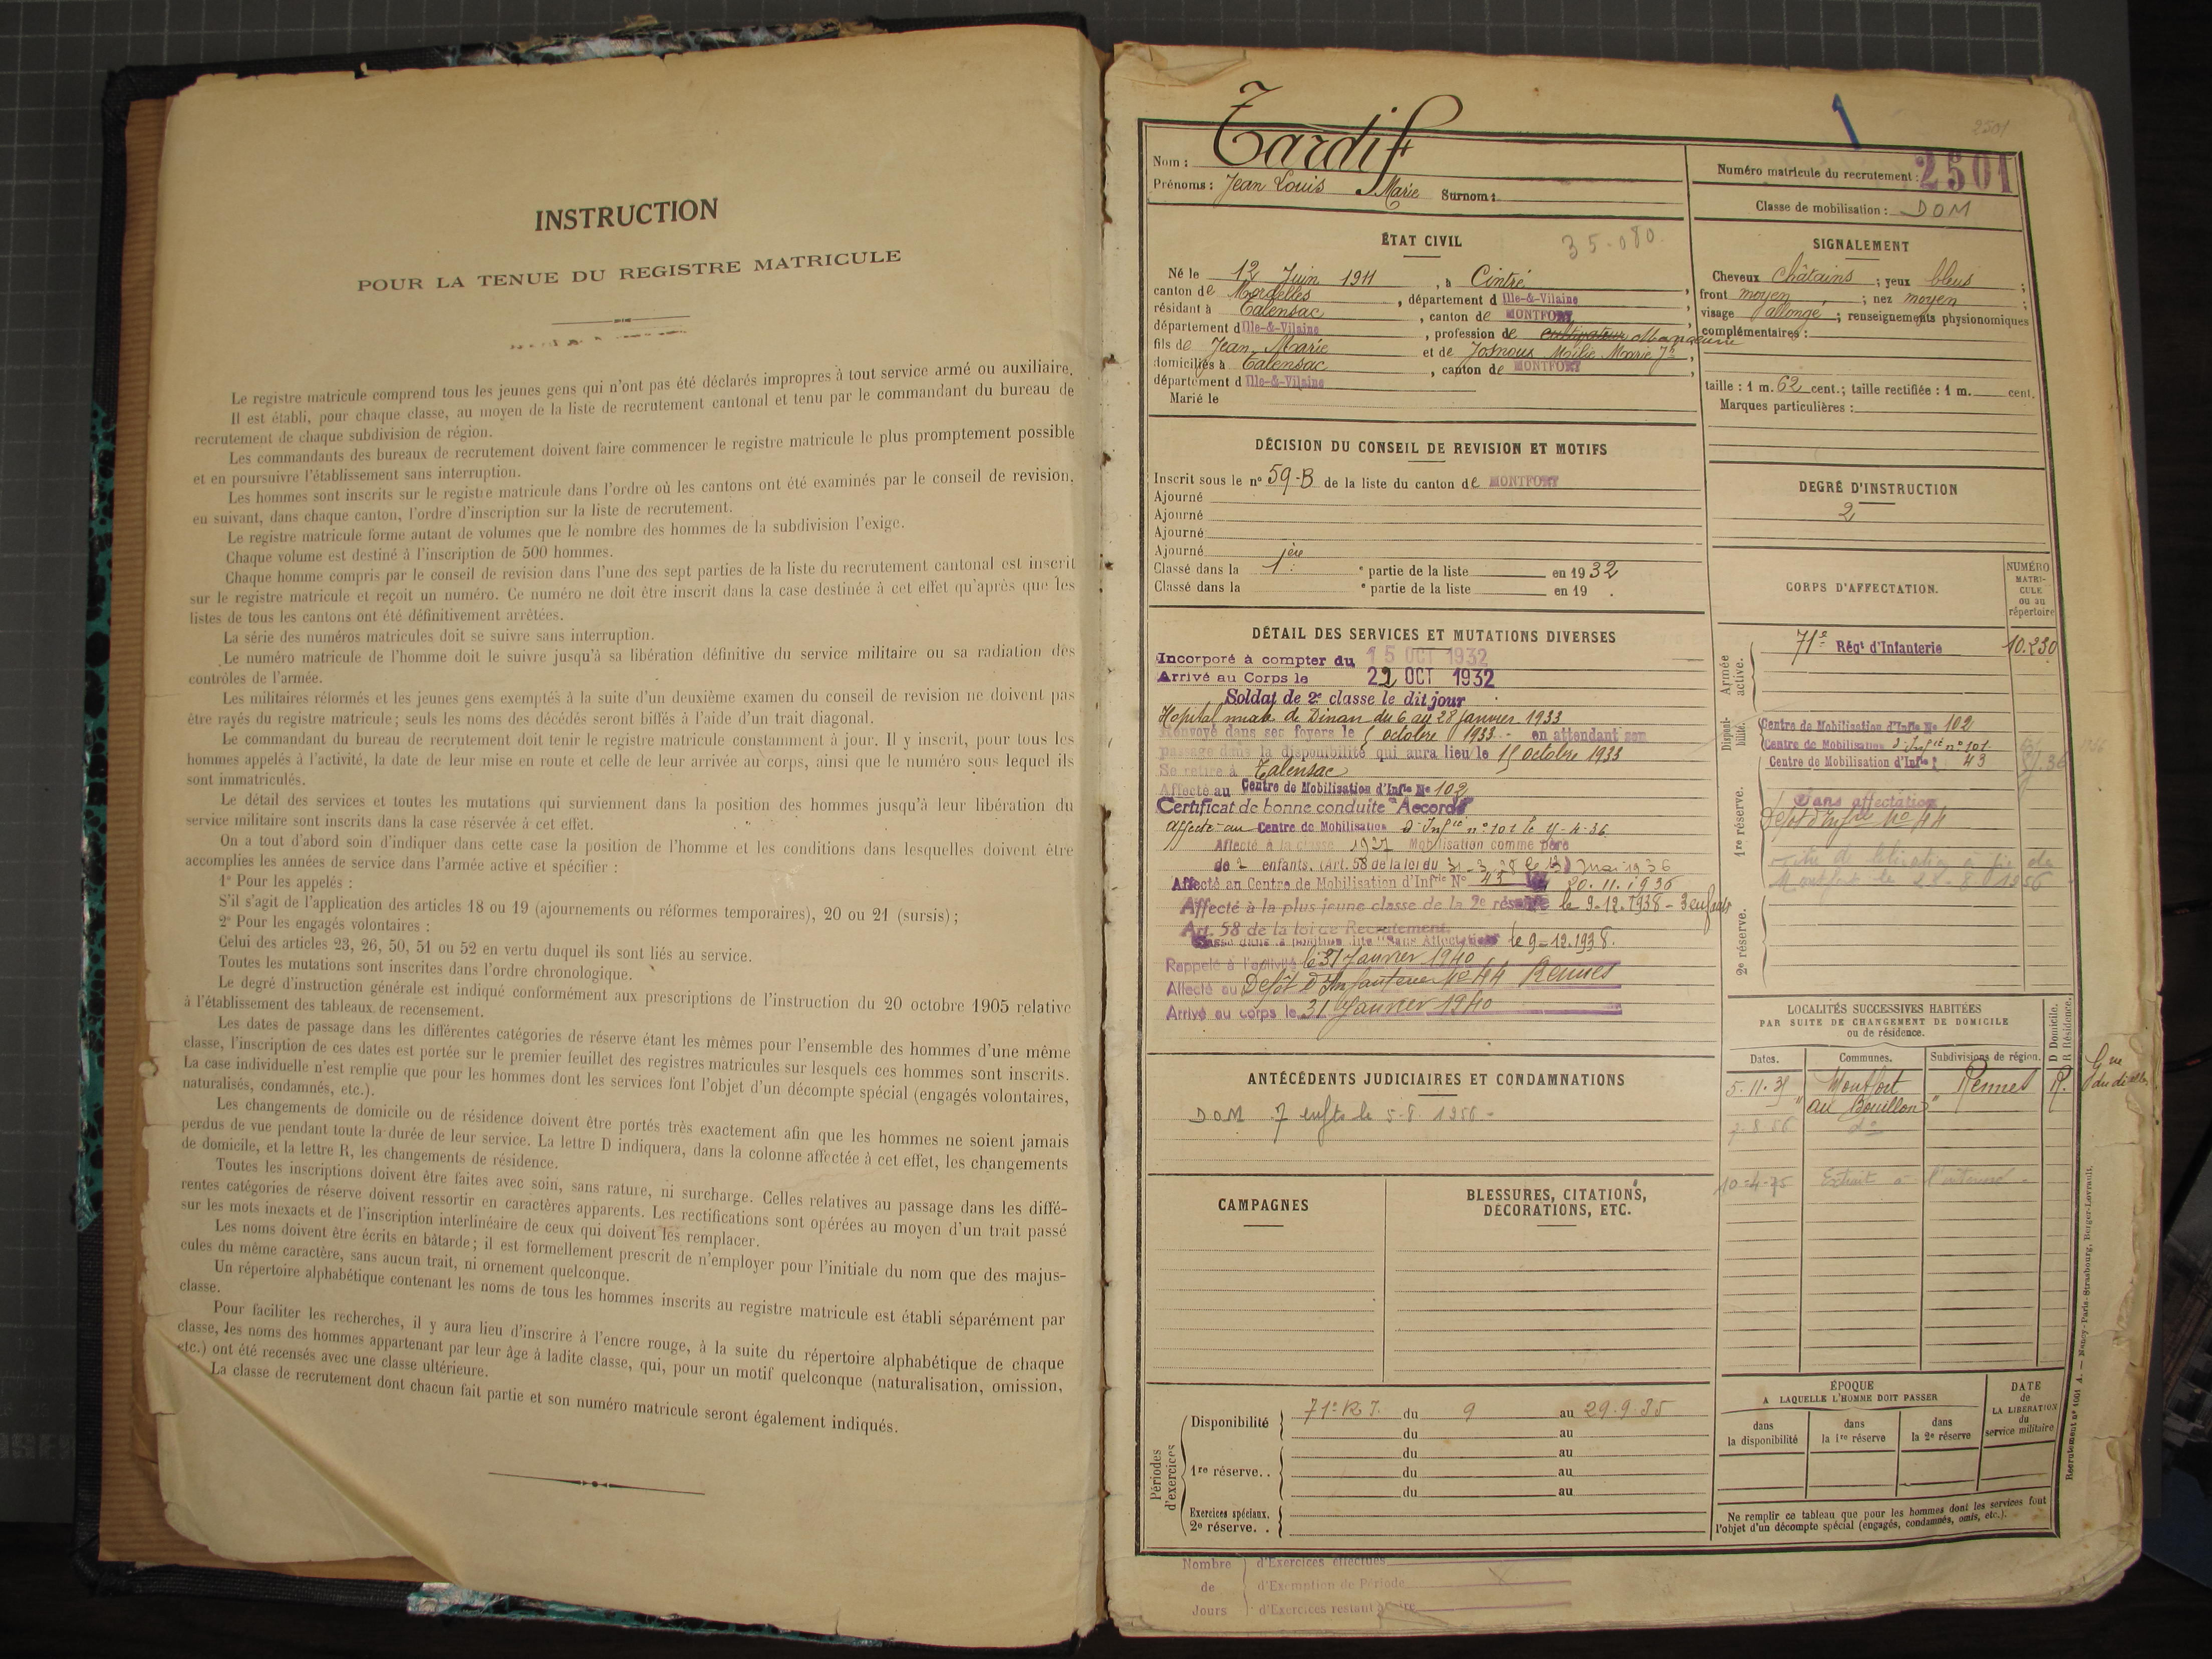 INSTRUCTION
POUR LA TENUE DU REGISTRE MATRICULE
Le registre matricule comprend tous les jeunes gens qui n'ont pas été déclarés impropres à tout service armé ou auxiliaire.
Il est établi, pour chaque classe, au moyen de la liste de recrutement cantonal et tenu par le commandant du bureau de
recrutement de chaque subdivision de région.
Les commandants des bureaux de recrutement doivent faire commencer le registre matricule le plus promptement possible
et en poursuivre l'établissement sans interruption.
Les hommes sont inscrits sur le registre matricule dans l'ordre où les cantons ont été examinés par le conseil de revision,
en suivant, dans chaque canton, l'ordre d'inscription sur la liste de recrutement.
Le registre matricule forme autant de volumes que le nombre des hommes de la subdivision l'exige.
Chaque volume est destiné à l'inscription de 500 hommes.
Chaque homme compris par le conseil de revision dans l'une des sept parties de la liste du recrutement cantonal est inscrit
sur le registre matricule et reçoit un numéro. Ce numéro ne doit être inscrit dans la case destinée à cet effet qu'après que les
listes de tous les cantons ont été définitivement arrêtées.
La série des numéros matricules doit se suivre sans interruption.
Le numéro matricule de l'homme doit le suivre jusqu'à sa libération définitive du service militaire ou sa radiation des
contrôles de l'armée.
Les militaires réformés et les jeunes gens exemptés à la suite d'un deuxième examen du conseil de revision ne doivent pas
être rayés du registre matricule; seuls les noms des décédés seront biffés à l'aide d'un trait diagonal.
Le commandant du bureau de recrutement doit tenir le registre matricule constamment à jour. Il y inscrit, pour tous les
hommes appelés à l'activité, la date de leur mise en route et celle de leur arrivée au corps, ainsi que le numéro sous lequel ils
sont immatriculés.
Le détail des services et toutes les mutations qui surviennent dans la position des hommes jusqu'à leur libération du
service militaire sont inscrits dans la case réservée à cet effet.
On a tout d'abord soin d'indiquer dans cette case la position de l'homme et les conditions dans lesquelles doivent être
accomplies les années de service dans l'armée active et spécifier :
1° Pour les appelés :
S'il s'agit de l'application des articles 18 ou 19 (ajournements ou réformes temporaires), 20 ou 21 (sursis);
2° Pour les engagés volontaires :
Celui des articles 23, 26, 50, 51 ou 52 en vertu duquel ils sont liés au service.
Toutes les mutations sont inscrites dans l'ordre chronologique.
Le degré d'instruction générale est indiqué conformément aux prescriptions de l'instruction du 20 octobre 1905 relative
à l'établissement des tableaux de recensement.
Les dates de passage dans les différentes catégories de réserve étant les mêmes pour l'ensemble des hommes d'une même
classe, l'inscription de ces dates est portée sur le premier feuillet des registres matricules sur lesquels ces hommes sont inscrits.
La case individuelle n'est remplie que pour les hommes dont les services font l'objet d'un décompte spécial (engagés volontaires,
naturalisés, condamnés, etc.).
Les changements de domicile ou de résidence doivent être portés très exactement afin que les hommes ne soient jamais
perdus de vue pendant toute la durée de leur service. La lettre D indiquera, dans la colonne affectée à cet effet, les changements
de domicile, et la lettre R, les changements de résidence.
Toutes les inscriptions doivent être faites avec soin, sans rature, ni surcharge. Celles relatives au passage dans les diffé-
rentes catégories de réserve doivent ressortir en caractères apparents. Les rectifications sont opérées au moyen d'un trait passé
sur les mots inexacts et de l'inscription interlinéaire de ceux qui doivent les remplacer.
Les noms doivent être écrits en bâtarde; il est formellement prescrit de n'employer pour l'initiale du nom que des majus-
cules du même caractère, sans aucun trait, ni ornement quelconque.
Un répertoire alphabétique contenant les noms de tous les hommes inscrits au registre matricule est établi séparément par
classe.
Pour faciliter les recherches, il y aura lieu d'inscrire à l'encre rouge, à la suite du répertoire alphabétique de chaque
classe, les noms des hommes appartenant par leur âge à ladite classe, qui, pour un motif quelconque (naturalisation, omission,
etc.) ont été recensés avec une classe ultérieure.
La classe de recrutement dont chacun fait partie et son numéro matricule seront également indiqués.
2501
Nom : Tardif
Prénoms : Jean Louis Marie Surnom :
Numéro matricule du recrutement : 2501
Classe de mobilisation : DOM
ÉTAT CIVIL
35-080
Né le 12 Juin 1911, à Cintré
canton de Mordelles, département d Ille-&-Vilaine
résidant à Talensac, canton de MONTFORT
département d Ille-&-Vilaine, profession de cultivateur
fils de Jean Marie et de
domiciliés à Talensac, canton de MONTFORT
département d Ille-&-Vilaine
Marié le
SIGNALEMENT
Cheveux châtains ; yeux bleus ;
front moyen ; nez moyen ;
visage allongé ; renseignements physionomiques
complémentaires :
taille : 1 m. 62 cent.; taille rectifiée : 1 m. cent.
Marques particulières :
DÉCISION DU CONSEIL DE REVISION ET MOTIFS
Inscrit sous le n° 59-B de la liste du canton de MONTFORT
Ajourné
Ajourné
Ajourné
Ajourné
Classé dans la 1ère partie de la liste en 1932
Classé dans la e partie de la liste en 19 .
DEGRÉ D'INSTRUCTION
2
DÉTAIL DES SERVICES ET MUTATIONS DIVERSES
Incorporé à compter du 15 OCT 1932
Arrivé au Corps le 22 OCT 1932
Soldat de 2e classe le dit jour
Hopital de Dinan du 6 au 28 janvier 1933
Renvoyé dans ses foyers le octobre 1933 en attendant son
passage dans la disponibilité qui aura lieu le 15 octobre 1933
Se retire à Talensac
Affecté au Centre de Mobilisation d'Infie No 102
Certificat de bonne conduite "Accordé"
Affecté au Centre de Mobilisation d'Infie n° 101 le -4-36
Affecté à la classe 1927 Mobilisation comme père
de 2 enfants. (Art. 58 de la loi du 31-3-28 le Mai 1936
Affecté au Centre de Mobilisation d'Infrie No 43 20.11.1936
Affecté à la plus jeune classe de la 2e réserve le 9-12-1938 - 3 enfants
Art. 58 de la loi de Recrutement.
Classé dans la position dite "Sans Affectation" le 9-12.1938.
Rappelé à l'activité le 31 Janvier 1940
Affecté au Dépôt d'Infanterie No 44 Rennes
Arrivé au corps le 31 Janvier 1940
CORPS D'AFFECTATION.
NUMÉRO MATRI-CULE ou au répertoire
Armée active.
71e Régt d'Infanterie 10.230
Disponi-bilité.
Centre de Mobilisation d'Infie No 102
Centre de Mobilisation d'Infie n° 101
Centre de Mobilisation d'Infie 43
1re réserve.
Sans affectation
Dépôt d'Infie No 44
2e réserve.
LOCALITÉS SUCCESSIVES HABITÉES
PAR SUITE DE CHANGEMENT DE DOMICILE
ou de résidence.
D Domicile. R Résidence.
Dates. Communes. Subdivisions de région.
5.11.35 Montfort Rennes R.
au Bouillon
10-4-75 Extrait
ANTÉCÉDENTS JUDICIAIRES ET CONDAMNATIONS
DOM 7 enfts le 5-8-1956 -
CAMPAGNES
BLESSURES, CITATIONS,
DÉCORATIONS, ETC.
Périodes d'exercices
Disponibilité 71e R.I. du 9 au 29-9-35
du au
1re réserve. . du au
du au
du au
Exercices spéciaux.
2e réserve. .
ÉPOQUE
A LAQUELLE L'HOMME DOIT PASSER
dans la disponibilité
dans la 1re réserve
dans la 2e réserve
DATE de LA LIBÉRATION du service militaire
Ne remplir ce tableau que pour les hommes dont les services font
l'objet d'un décompte spécial (engagés, condamnés, omis, etc.).
Nombre de Jours
d'Exercices effectués
d'Exemption de Période
d'Exercices restant à faire
Recrutement n° 1001 A. — Nancy-Paris-Strasbourg, Berger-Levrault.